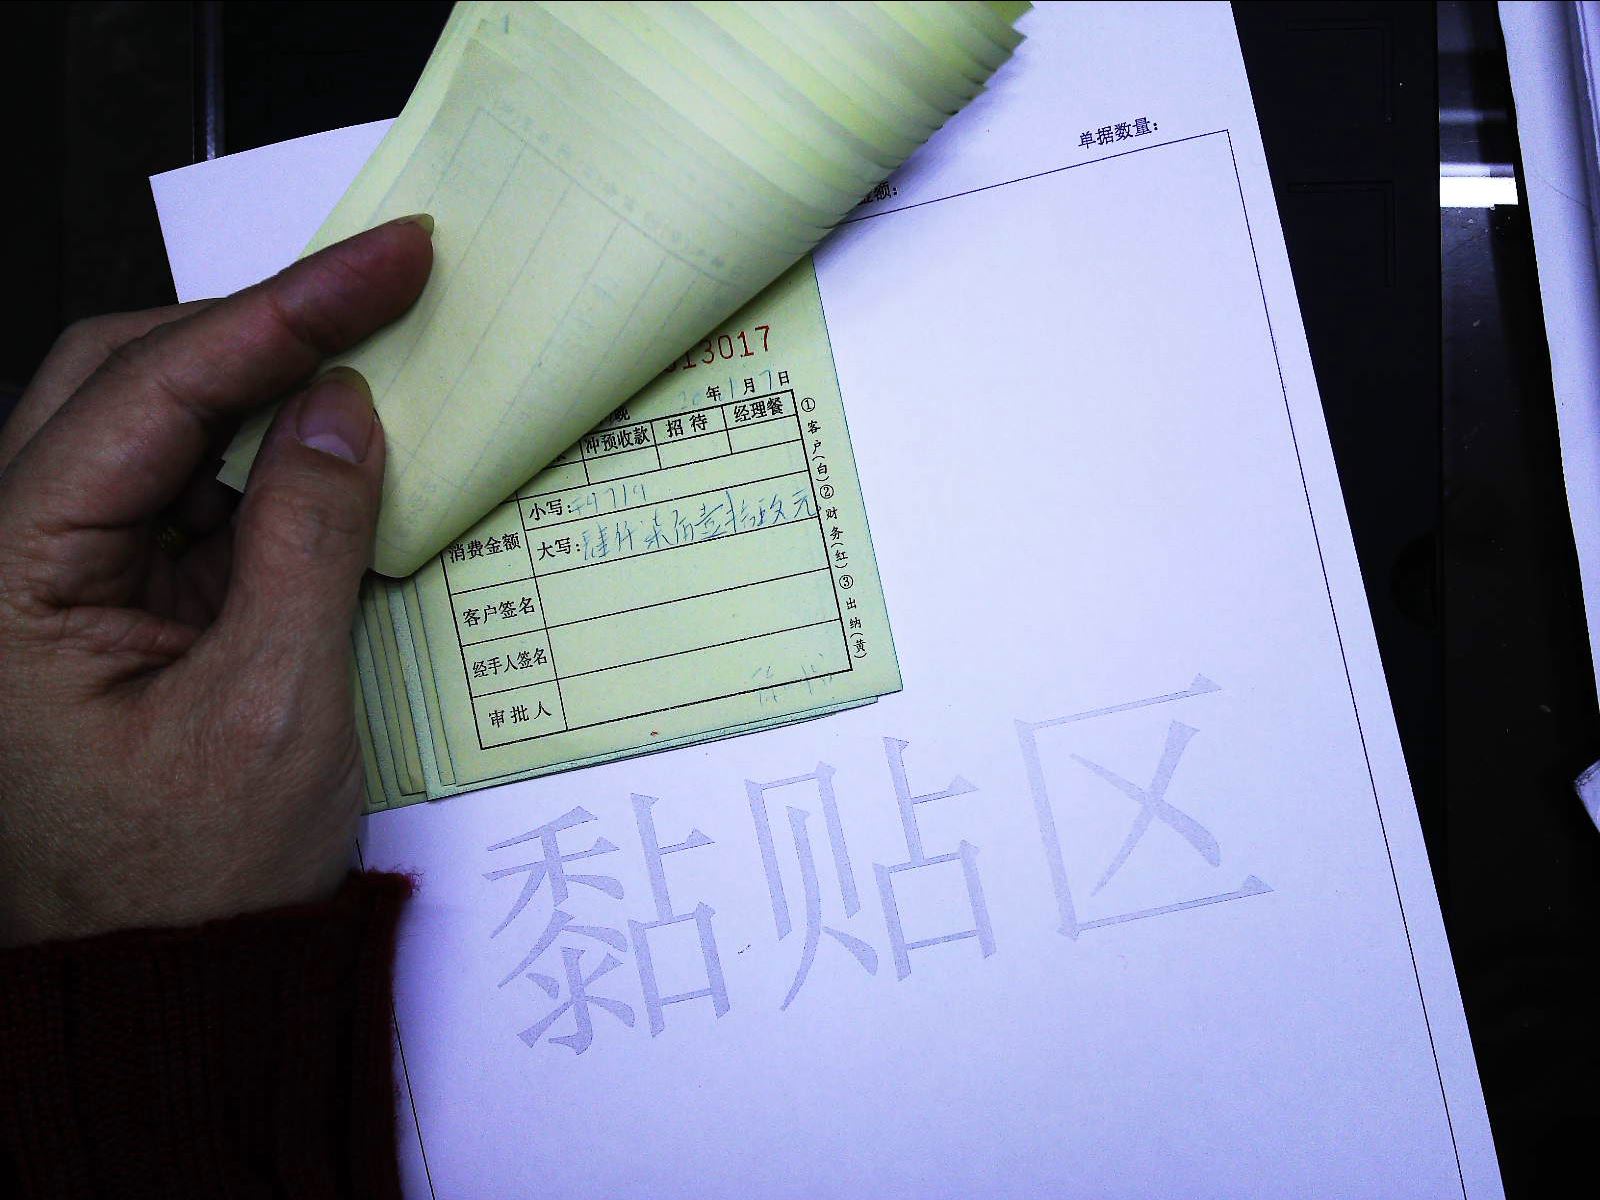 单据数量：
金额：
13017
年1月7日
冲预收款 招待 经理餐
小写：
消费金额 大写：肆仟柒佰壹拾玖元
客户签名
经手人签名
审批人
①客户（白）②财务（红）③出纳（黄）
黏贴区